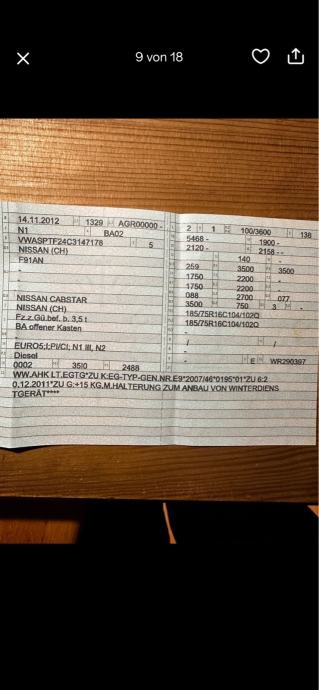 9 von 18
14.11.2012 1329 AGR00000 -
N1 BA02
VWASPTF24C3147178 5
NISSAN (CH)
F91AN
-
-
NISSAN CABSTAR
NISSAN (CH)
Fz.z.Gü.bef. b. 3,5 t
BA offener Kasten
-
EURO5;I;PI/CI; N1 III, N2
Diesel
0002 35I0 2488
2 1 100/3600 138
5468 - 1900 -
2120 - - 2158 - -
- 140 -
259 3500 3500
1750 2200 -
1750 2200 -
088 2700 077
3500 750 3 -
185/75R16C104/102Q
185/75R16C104/102Q
-
/ /
-
- E WR290397
WW.AHK LT.EGTG*ZU K:EG-TYP-GEN.NR.E9*2007/46*0195*01*ZU 6:2
0.12.2011*ZU G:+15 KG.M.HALTERUNG ZUM ANBAU VON WINTERDIENS
TGERÄT****